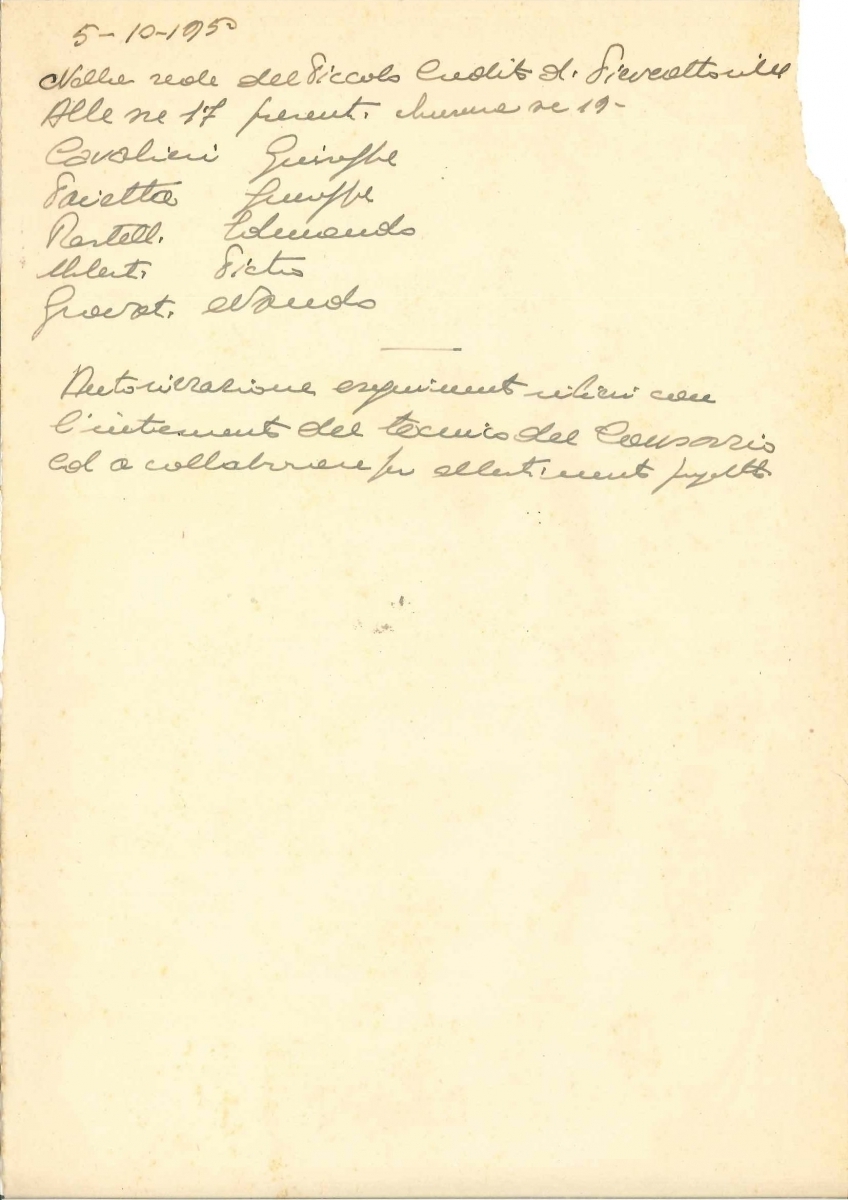 5-10-1950
Nella sede del Piccolo Credito di Pieveottoville
Alle ore 17 presenti chiusura ore 19-
Cavalieri Giuseppe
Faietta Giuseppe
Rastelli Edmondo
Alberti Pietro
Gravati Nando
Autorizzazione esperimenti rilievi con
l'intervento del tecnico del Consorzio
ed a collaborare per allestimento progetto